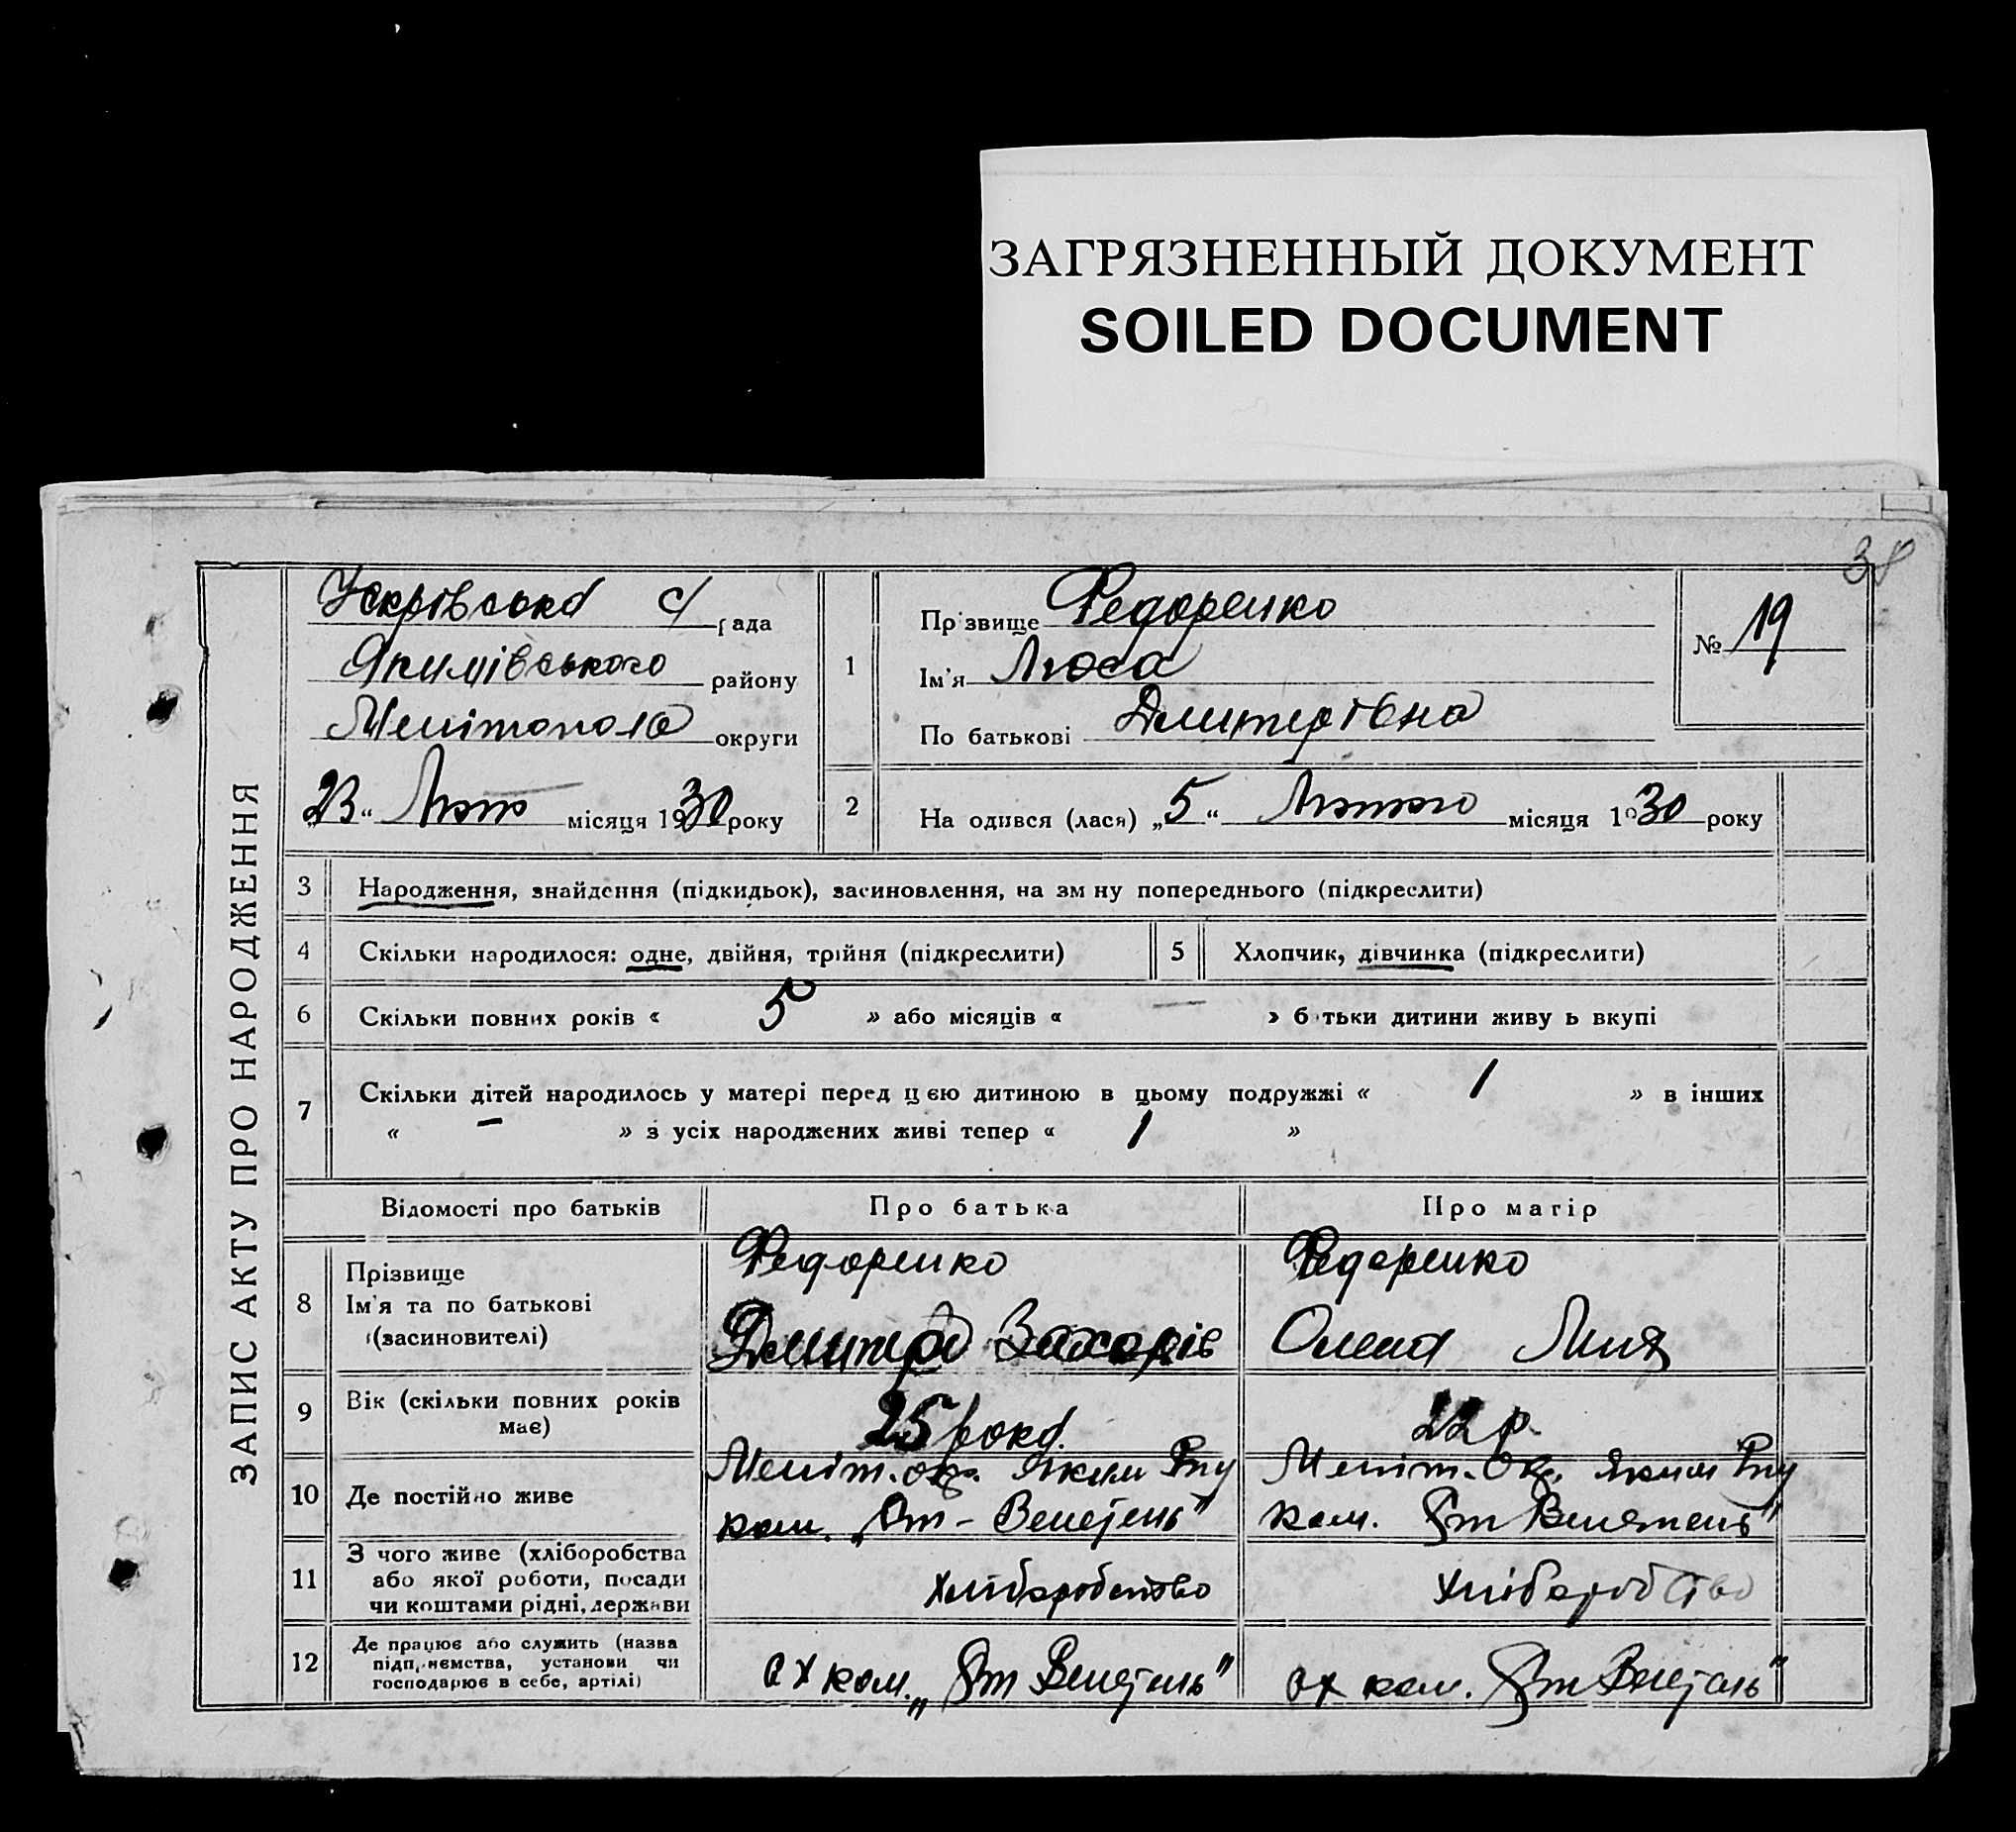 ЗАГРЯЗНЕННЫЙ ДОКУМЕНТ
SOILED DOCUMENT
ЗАПИС АКТУ ПРО НАРОДЖЕННЯ
с/ рада
Якимівського району
округи
23 місяця 1930 року
1
Прізвище Федоренко
Ім'я Люся
По батькові Дмитрівна
№ 19
2
На одився (лася) „5“ Лютого місяця 1930 року
3 Народження, знайдення (підкидьок), засиновлення, на зм ну попереднього (підкреслити)
4 Скільки народилося: одне, двійня, трійня (підкреслити)
5 Хлопчик, дівчинка (підкреслити)
6 Скільки повних років « 5 » або місяців « — » б тьки дитини живу ь вкупі
7 Скільки дітей народилось у матері перед ц єю дитиною в цьому подружжі « 1 » в інших
« – » з усіх народжених живі тепер « 1 »
Відомості про батьків Про батька Про матір
8 Прізвище
Ім'я та по батькові
(засиновителі)
Федоренко
Захарів
Федоренко
Олена
9 Вік (скільки повних років
має)
25
22 р.
10 Де постійно живе
Меліт. окр. Яким
ком.
Меліт. Окр. Яким
ком.
11 З чого живе (хліборобства
або якої роботи, посади
чи коштами рідні, держави
Хліборобство
Хліборобство
12 Де працює або служить (назва
підприємства, установи чи
господарює в себе, артілі)
ком.
ком.